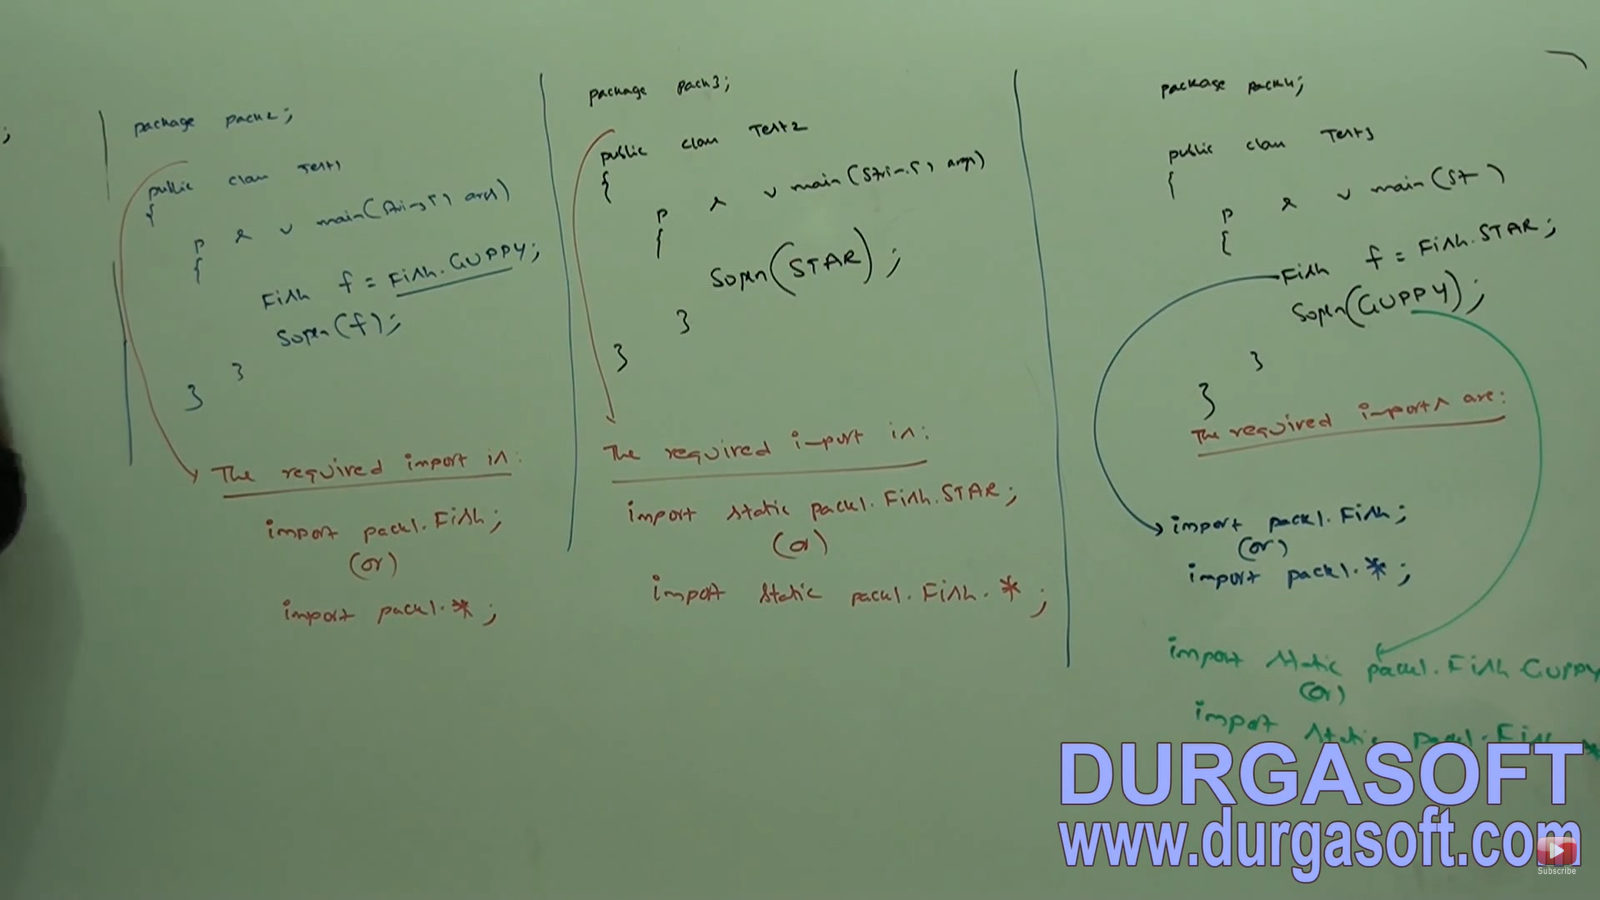 ;
package pack2;
public class Test1
{
p s v main(String[] args)
{
Fish f = Fish.GUPPY;
Sopln(f);
}
}
The required import is:
import pack1.Fish;
(or)
import pack1.*;
package pack3;
public class Test2
{
p s v main(String[] args)
{
Sopln(STAR);
}
}
The required import is:
import static pack1.Fish.STAR;
(or)
import static pack1.Fish.*;
package pack4;
public class Test3
{
p s v main(St-)
{
Fish f = Fish.STAR;
Sopln(GUPPY);
}
}
The required imports are:
import pack1.Fish;
(or)
import pack1.*;
import static pack1.Fish.GUPPY
(or)
import static pack1.Fish.*
DURGASOFT
www.durgasoft.com
Subscribe